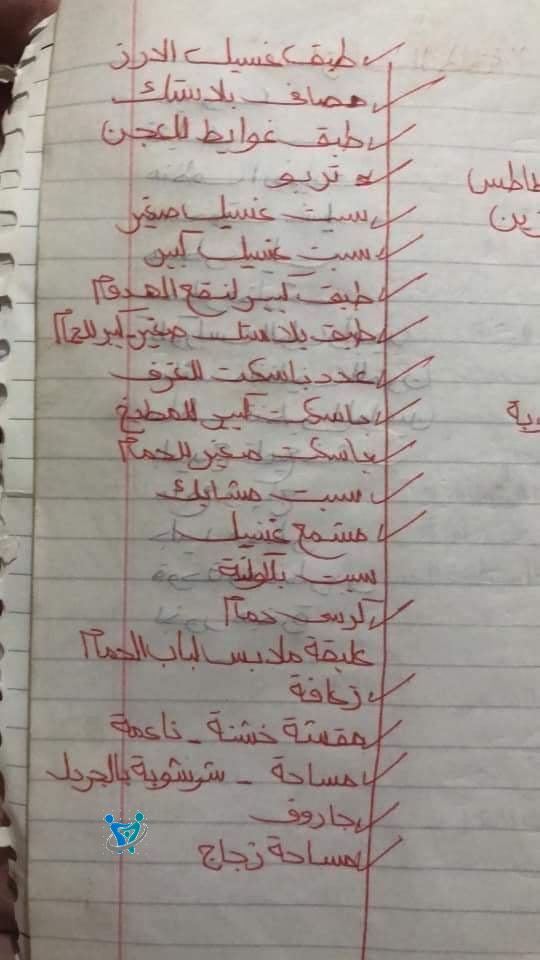 طبق غسيل الارز
مصافى بلاستك
طبق غوايط للعجن
تربو
سبت غسيل صغير
سبت غسيل كبير
طبق كبير لنقع الهدوم
طبق بلاستك صغير كبير للحمام
عدد باسكت للغرف
باسكت كبير للمطبخ
باسكت صغير للحمام
سبت مشابك
مشمع غسيل
سبت بكولنة
كرسى حمام
عليقة ملابس لباب الحمام
زعافة
مقشة خشنة - ناعمة
مساحة - شرشوبة بالجردل
جاروف
مساحة زجاج